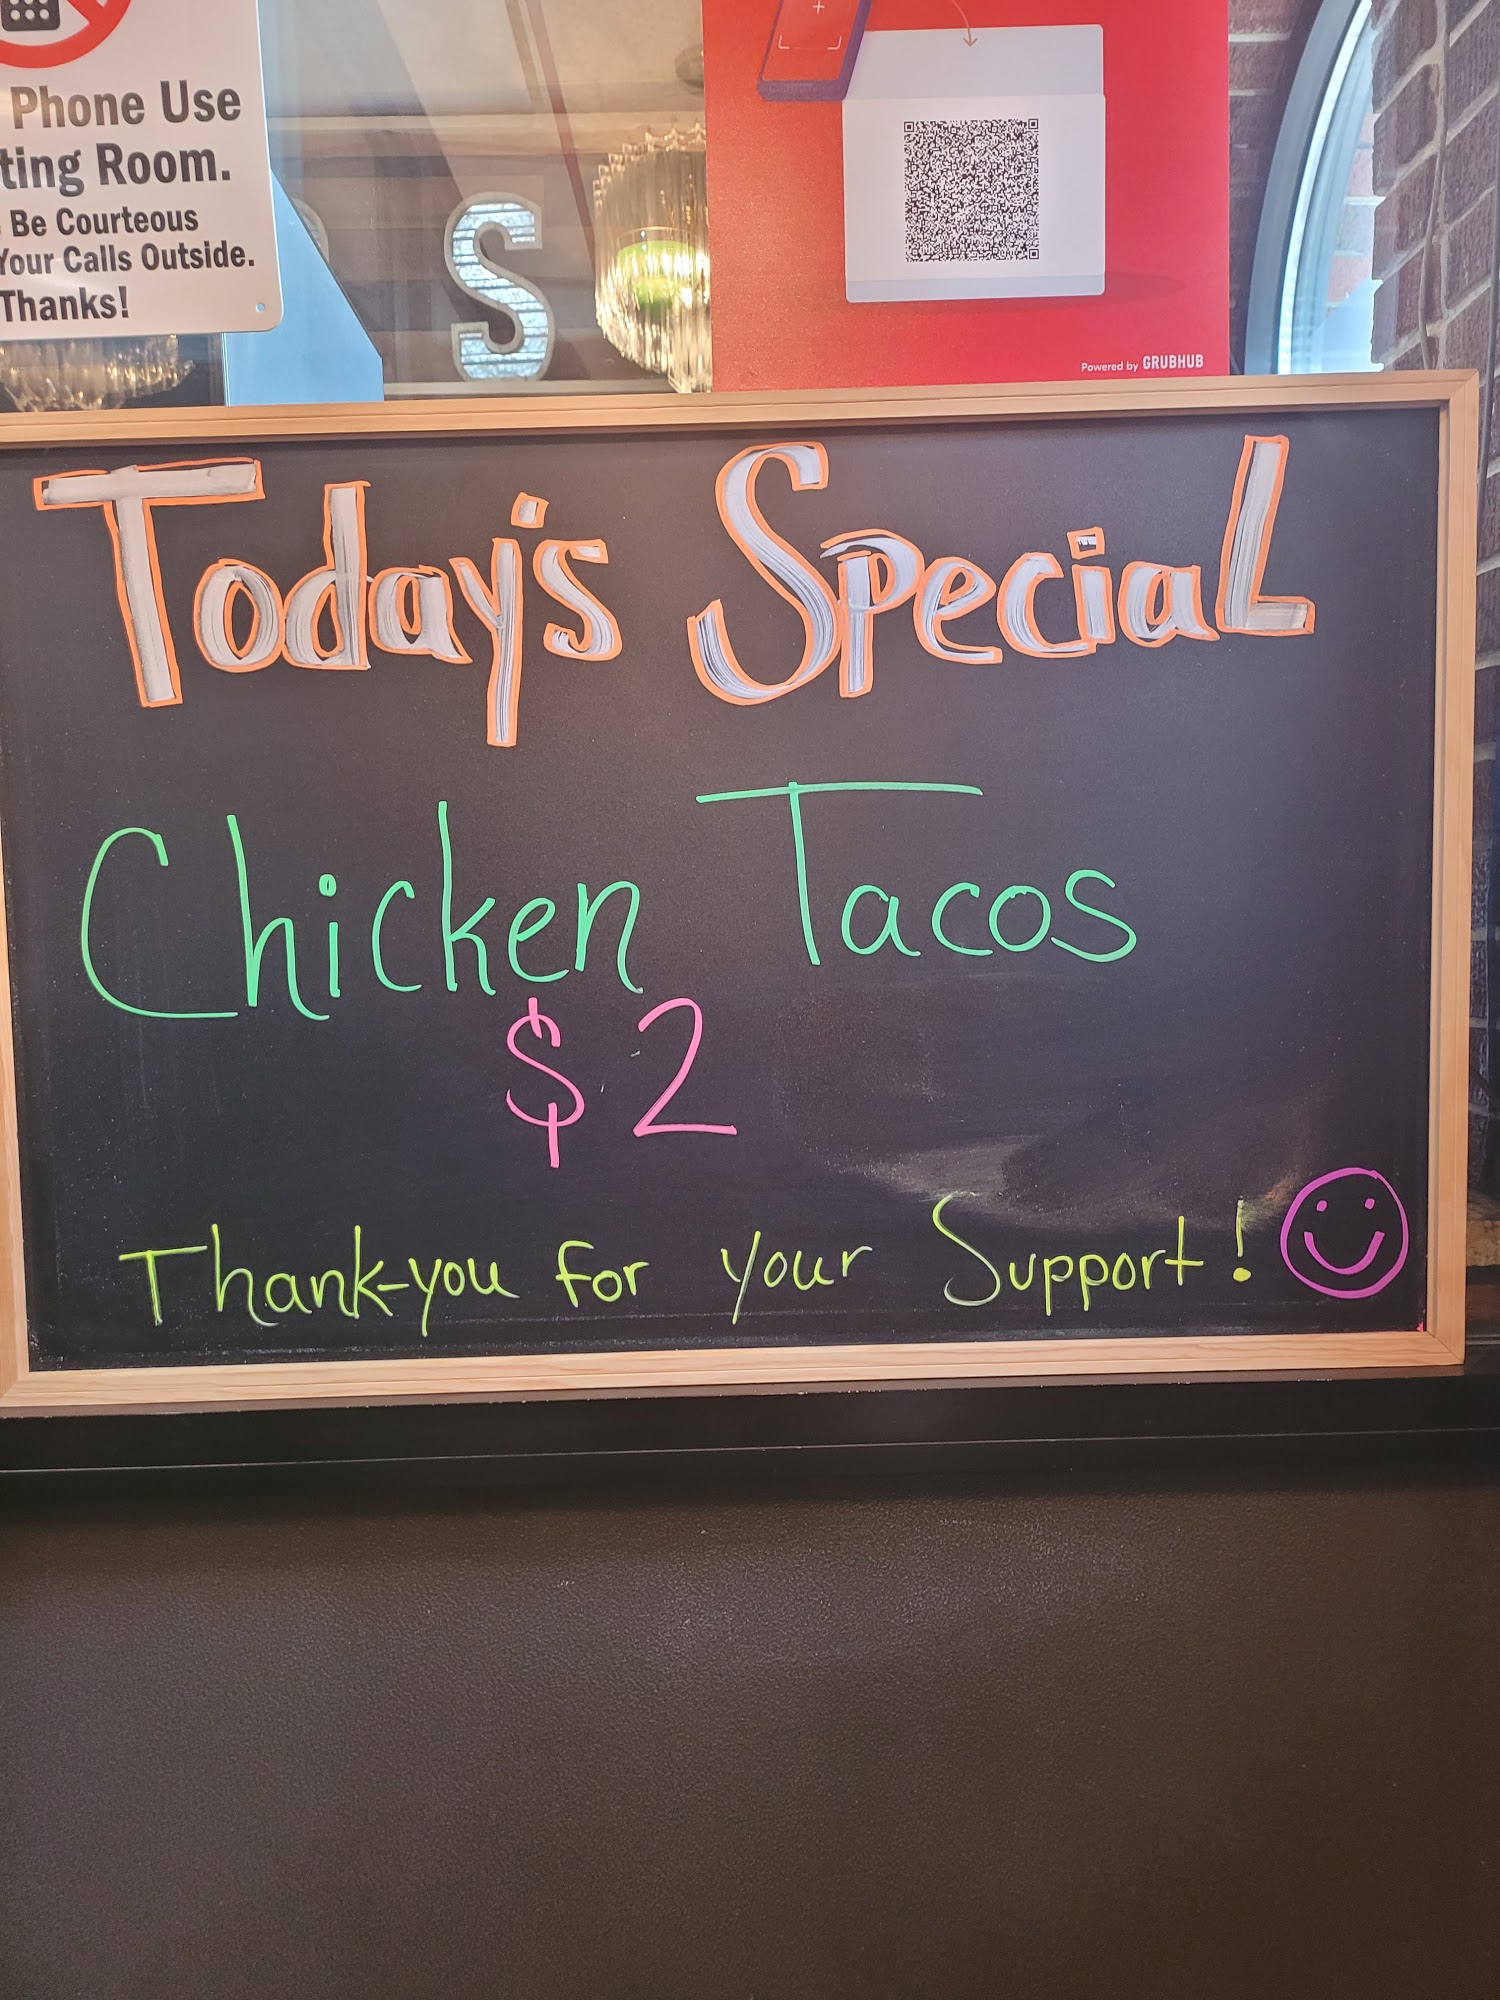 Phone Use
ting Room.
Be Courteous
Your Calls Outside.
Thanks!
S
Powered by GRUBHUB
Today's Special
Chicken Tacos
$2
Thank-you for your Support!